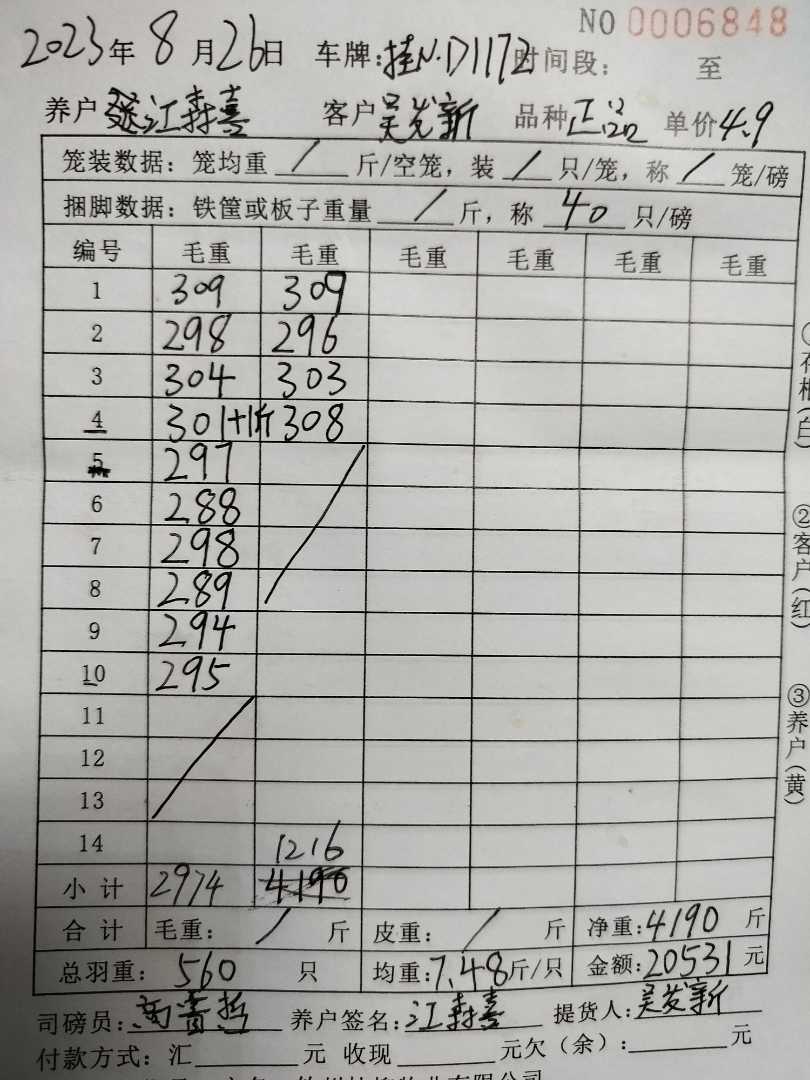 NO 0006848
2023年 8 月 26日 车牌:桂N·D1172 时间段: 至
养户 江寿喜 客户 吴发新 品种 正品 单价 4.9
笼装数据: 笼均重 / 斤/空笼, 装 / 只/笼, 称 / 笼/磅
捆脚数据: 铁筐或板子重量 / 斤, 称 40 只/磅
编号 毛重 毛重 毛重 毛重 毛重 毛重
1 309 309
2 298 296
3 304 303
4 301+1斤 308
5 297
6 288
7 298
8 289
9 294
10 295
11
12
13
14 1216
小 计 2974 4190
合 计 毛重: / 斤 皮重: / 斤 净重:4190 斤
总羽重: 560 只 均重:7.48斤/只 金额:20531 元
司磅员: 养户签名: 江寿喜 提货人:吴发新
付款方式: 汇 元 收现 元欠(余): 元
①存根(白)
②客户(红)
③养户(黄)